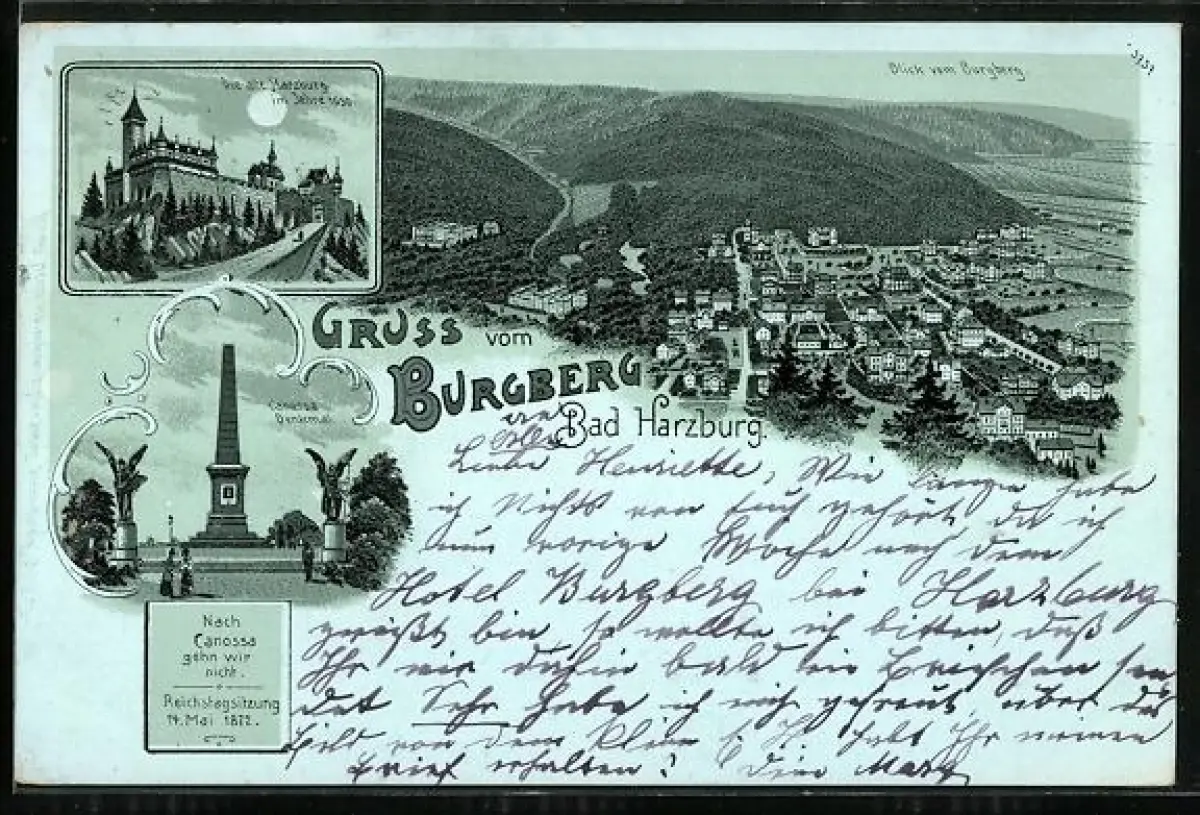 Die alte Harzburg
im Jahre
Blick vom Burgberg
GRUSS vom
BURGBERG
Bad Harzburg.
Canossa
Denkmal
Liebe Henriette, Wie lange habe
ich Nichts von Euch gehört, da ich
nun vorige Woche nach dem
Hotel Burgberg bei Harzburg
gereißt bin, so wollte ich bitten, daß
Ihr mir dahin bald ein Briefchen sen
det Sehr habe ich mich gefreut über das
Bild von dem Klein habt Ihr meinen
Brief erhalten? Deine
Nach
Canossa
gehn wir
nicht.
Reichstagsitzung
14. Mai 1872.